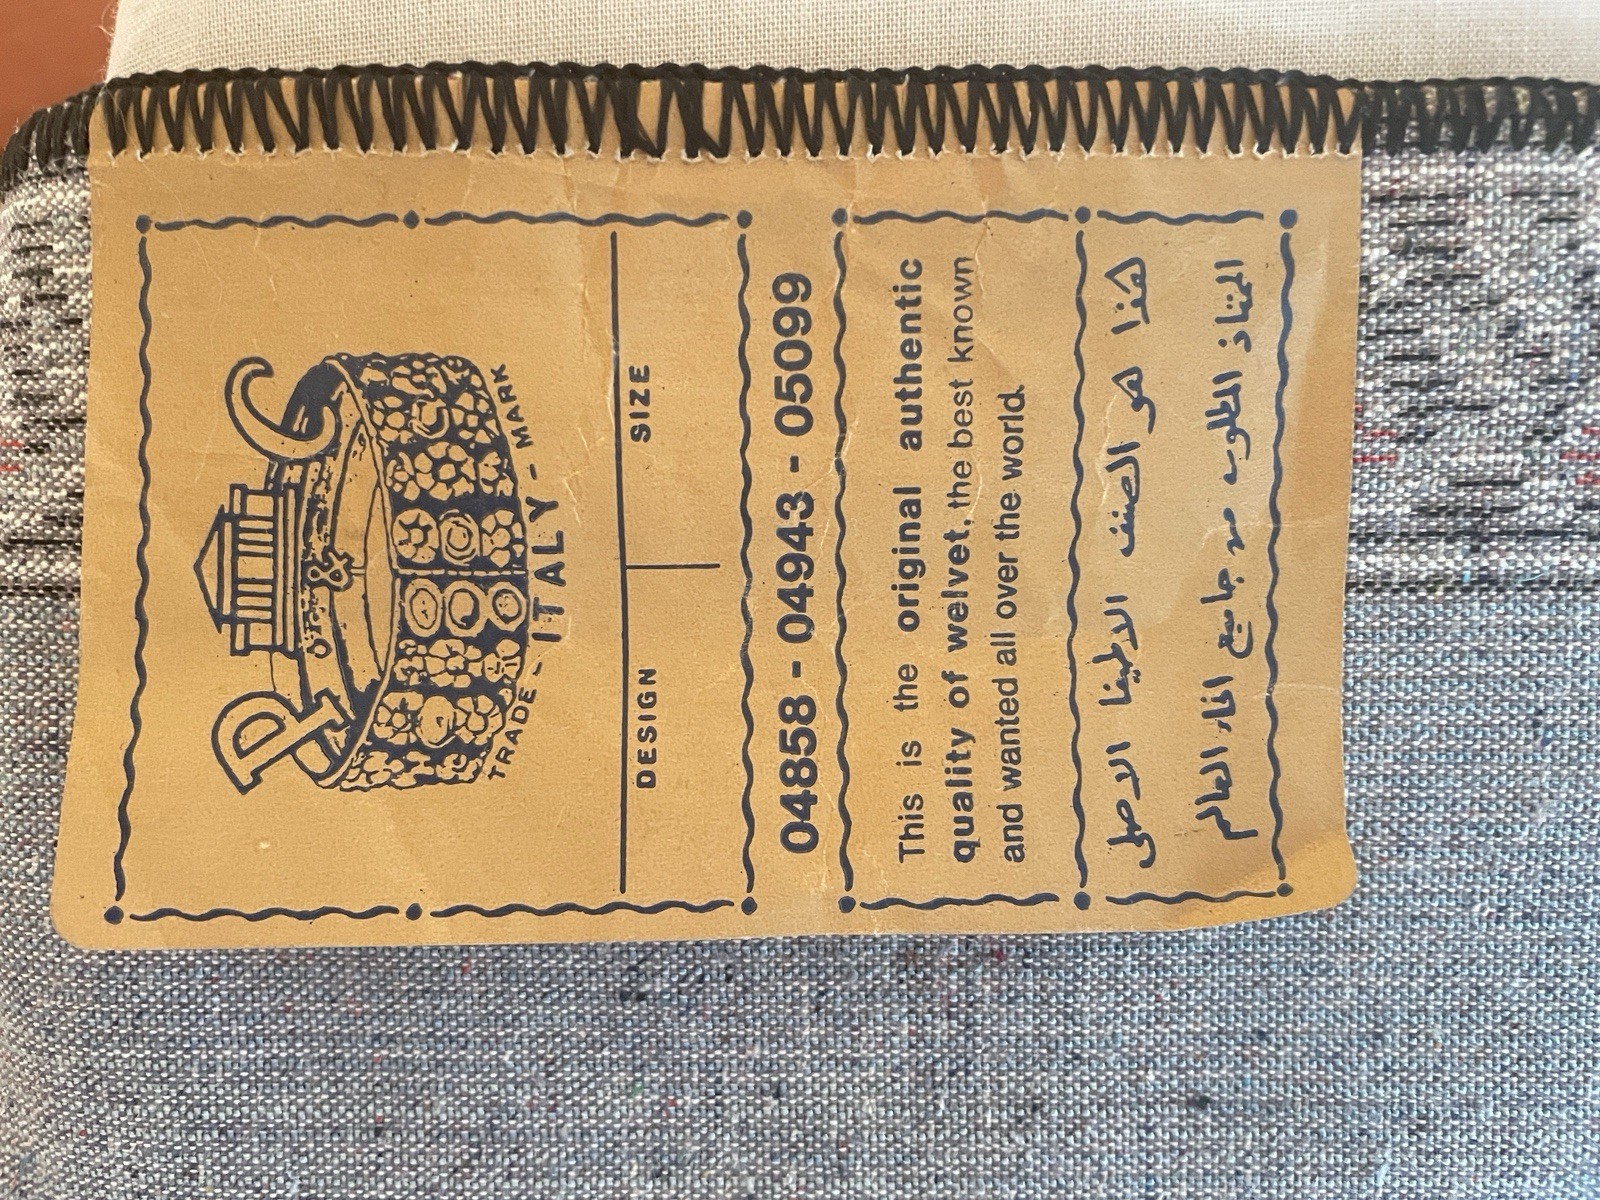 D C
TRADE - ITALY - MARK
DESIGN SIZE
04858 - 04943 - 05099
This is the original authentic
quality of welvet, the best known
and wanted all over the world.
هذا هو الصنف الاطينا الاصلى
الممتاز المطلوب من جاميع انحاء العالم